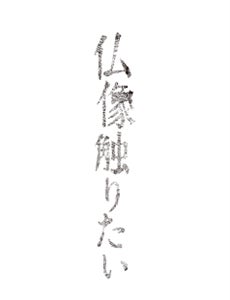 仏像触りたい